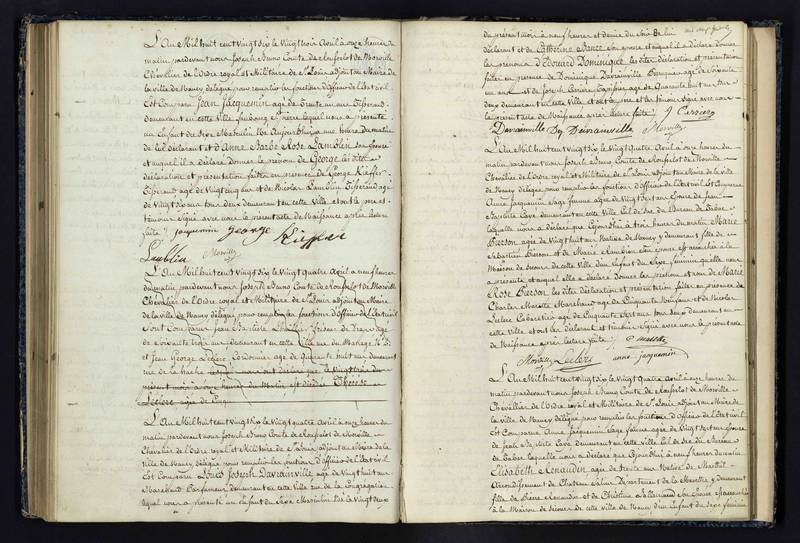 L'An Mil huit cent Vingt Six le Vingt trois Avril à onze heures du
matin pardevant nous Joseph Bruno Comte de Rouserlot de Morville
Chevalier de l'Ordre royal et Militaire de St Louis adjoint au Maire de
la Ville de Nancy délégué pour remplir les fonctions d'Officier de l'Etat civil
Est Comparu Jean Jacquemin agé de Trente un ans Tisserand
demeurant en cette Ville faubourg St Pierre lequel nous a présenté
un Enfant du Sexe Masculin Né Aujourd'hui a une heure du matin
de lui déclarant et d'Anne Barbe Rose Lamblin son Epouse
et auquel il a déclaré donner le prénom de George les dites
déclaration et présentation faites en présence de George Kieffer
Tisserand agé de Vingt cinq ans et de Nicolas Lamblin Tisserand agé
de Vingt six ans tous deux demeurant en cette Ville et ont les père et
témoins Signé avec nous le présent acte de Naissance après lecture
faite. Jacquemin George Kieffer
Lamblin Morville
L'An Mil huit cent Vingt Six le Vingt quatre Avril a neuf heures
du matin pardevant nous Joseph Bruno Comte de Rouserlot de Morville
Chevalier de l'Ordre royal et Militaire de St Louis adjoint au Maire
de la Ville de Nancy délégué pour remplir les fonctions d'Officier de l'Etat civil
Sont Comparus Jean Baptiste
de Soixante trois ans demeurant en cette Ville rue du Manège
et Jean George Leclère Cordonnier agé de Quarante huit ans demeurant
rue de la hache lesquels nous ont déclaré que le Vingt trois du
présent mois à onze heures du Matin est décédée Thérèse
Leclère agée de Cinq
L'An Mil huit cent Vingt Six le Vingt quatre Avril à onze heures du
matin pardevant nous Joseph Bruno Comte de Rouserlot de Morville
Chevalier de l'Ordre royal et Militaire de St Louis adjoint au Maire de la
Ville de Nancy délégué pour remplir les fonctions d'Officier de l'Etat civil
Est Comparu Louis Joseph Davrainville agé de Vingt huit ans
Marchand Parfumeur demeurant en cette Ville rue de la Congrégation
lequel nous a présenté un Enfant du Sexe Masculin Né le Vingt deux
du présent mois à neuf heures et demie du Soir de lui
déclarant et de Catherine son Epouse et auquel il a déclaré donner
les prénoms d'Edouard Dominique les dites déclaration et présentation
faites en présence de Dominique Davrainville agé de Soixante
un ans et de Joseph Carrière agé de Quarante huit ans tous
deux demeurant en cette Ville et ont les père et témoins Signé avec nous
le présent acte de Naissance après lecture faite. J Carrière
Davrainville Davrainville Morville
L'An Mil huit cent Vingt Six le Vingt Quatre Avril à onze heures du
matin pardevant nous Joseph Bruno Comte de Rouserlot de Morville
Chevalier de l'Ordre royal et Militaire de St Louis adjoint au Maire de la Ville
de Nancy délégué pour remplir les fonctions d'Officier de l'Etat civil Est Comparue
Anne Jacquemin Sage femme agée de Vingt Sept ans Epouse de Jean
Baptiste Caye demeurant en cette Ville
laquelle nous a déclaré que Aujourd'hui à trois heures du matin Marie
Bierson agée de Vingt huit ans Native de Nomeny y demeurant fille de
Sebastien Bierson et de Marie son Epouse est accouchée à la
Maison de Secours de cette Ville d'un Enfant du Sexe féminin qu'elle nous
a présenté et auquel elle a déclaré donner les prénoms et nom de Marie
Rose Bierson les dites déclaration et présentation faites en présence de
Charles Marotte Marchand agé de Cinquante Neuf ans et de Nicolas
Leclerc Cabaretier agé de Cinquante Sept ans tous deux demeurant en
cette Ville et ont les déclarant et témoins Signé avec nous le présent acte
de Naissance après lecture faite.
Morville Leclerc anne jacquemin
L'An Mil huit cent Vingt Six le Vingt Quatre Avril à onze heures du
matin pardevant nous Joseph Bruno Comte de Rouserlot de Morville
Chevalier de l'Ordre royal et Militaire de St Louis adjoint au Maire de
la Ville de Nancy délégué pour remplir les fonctions d'Officier de l'Etat civil
Est Comparue Anne Jacquemin Sage femme agée de Vingt Sept ans Epouse
de Jean Baptiste Caye demeurant en cette Ville
laquelle nous a déclaré que Aujourd'hui à neuf heures du matin
Elisabeth Renaudin agée de trente ans Native de
Arrondissement de Chateau Salins Département de la Meurthe y demeurant
fille de Pierre Renaudin et de Christine son Epouse est accouchée
à la Maison de Secours de cette Ville de Nancy d'un Enfant du Sexe féminin